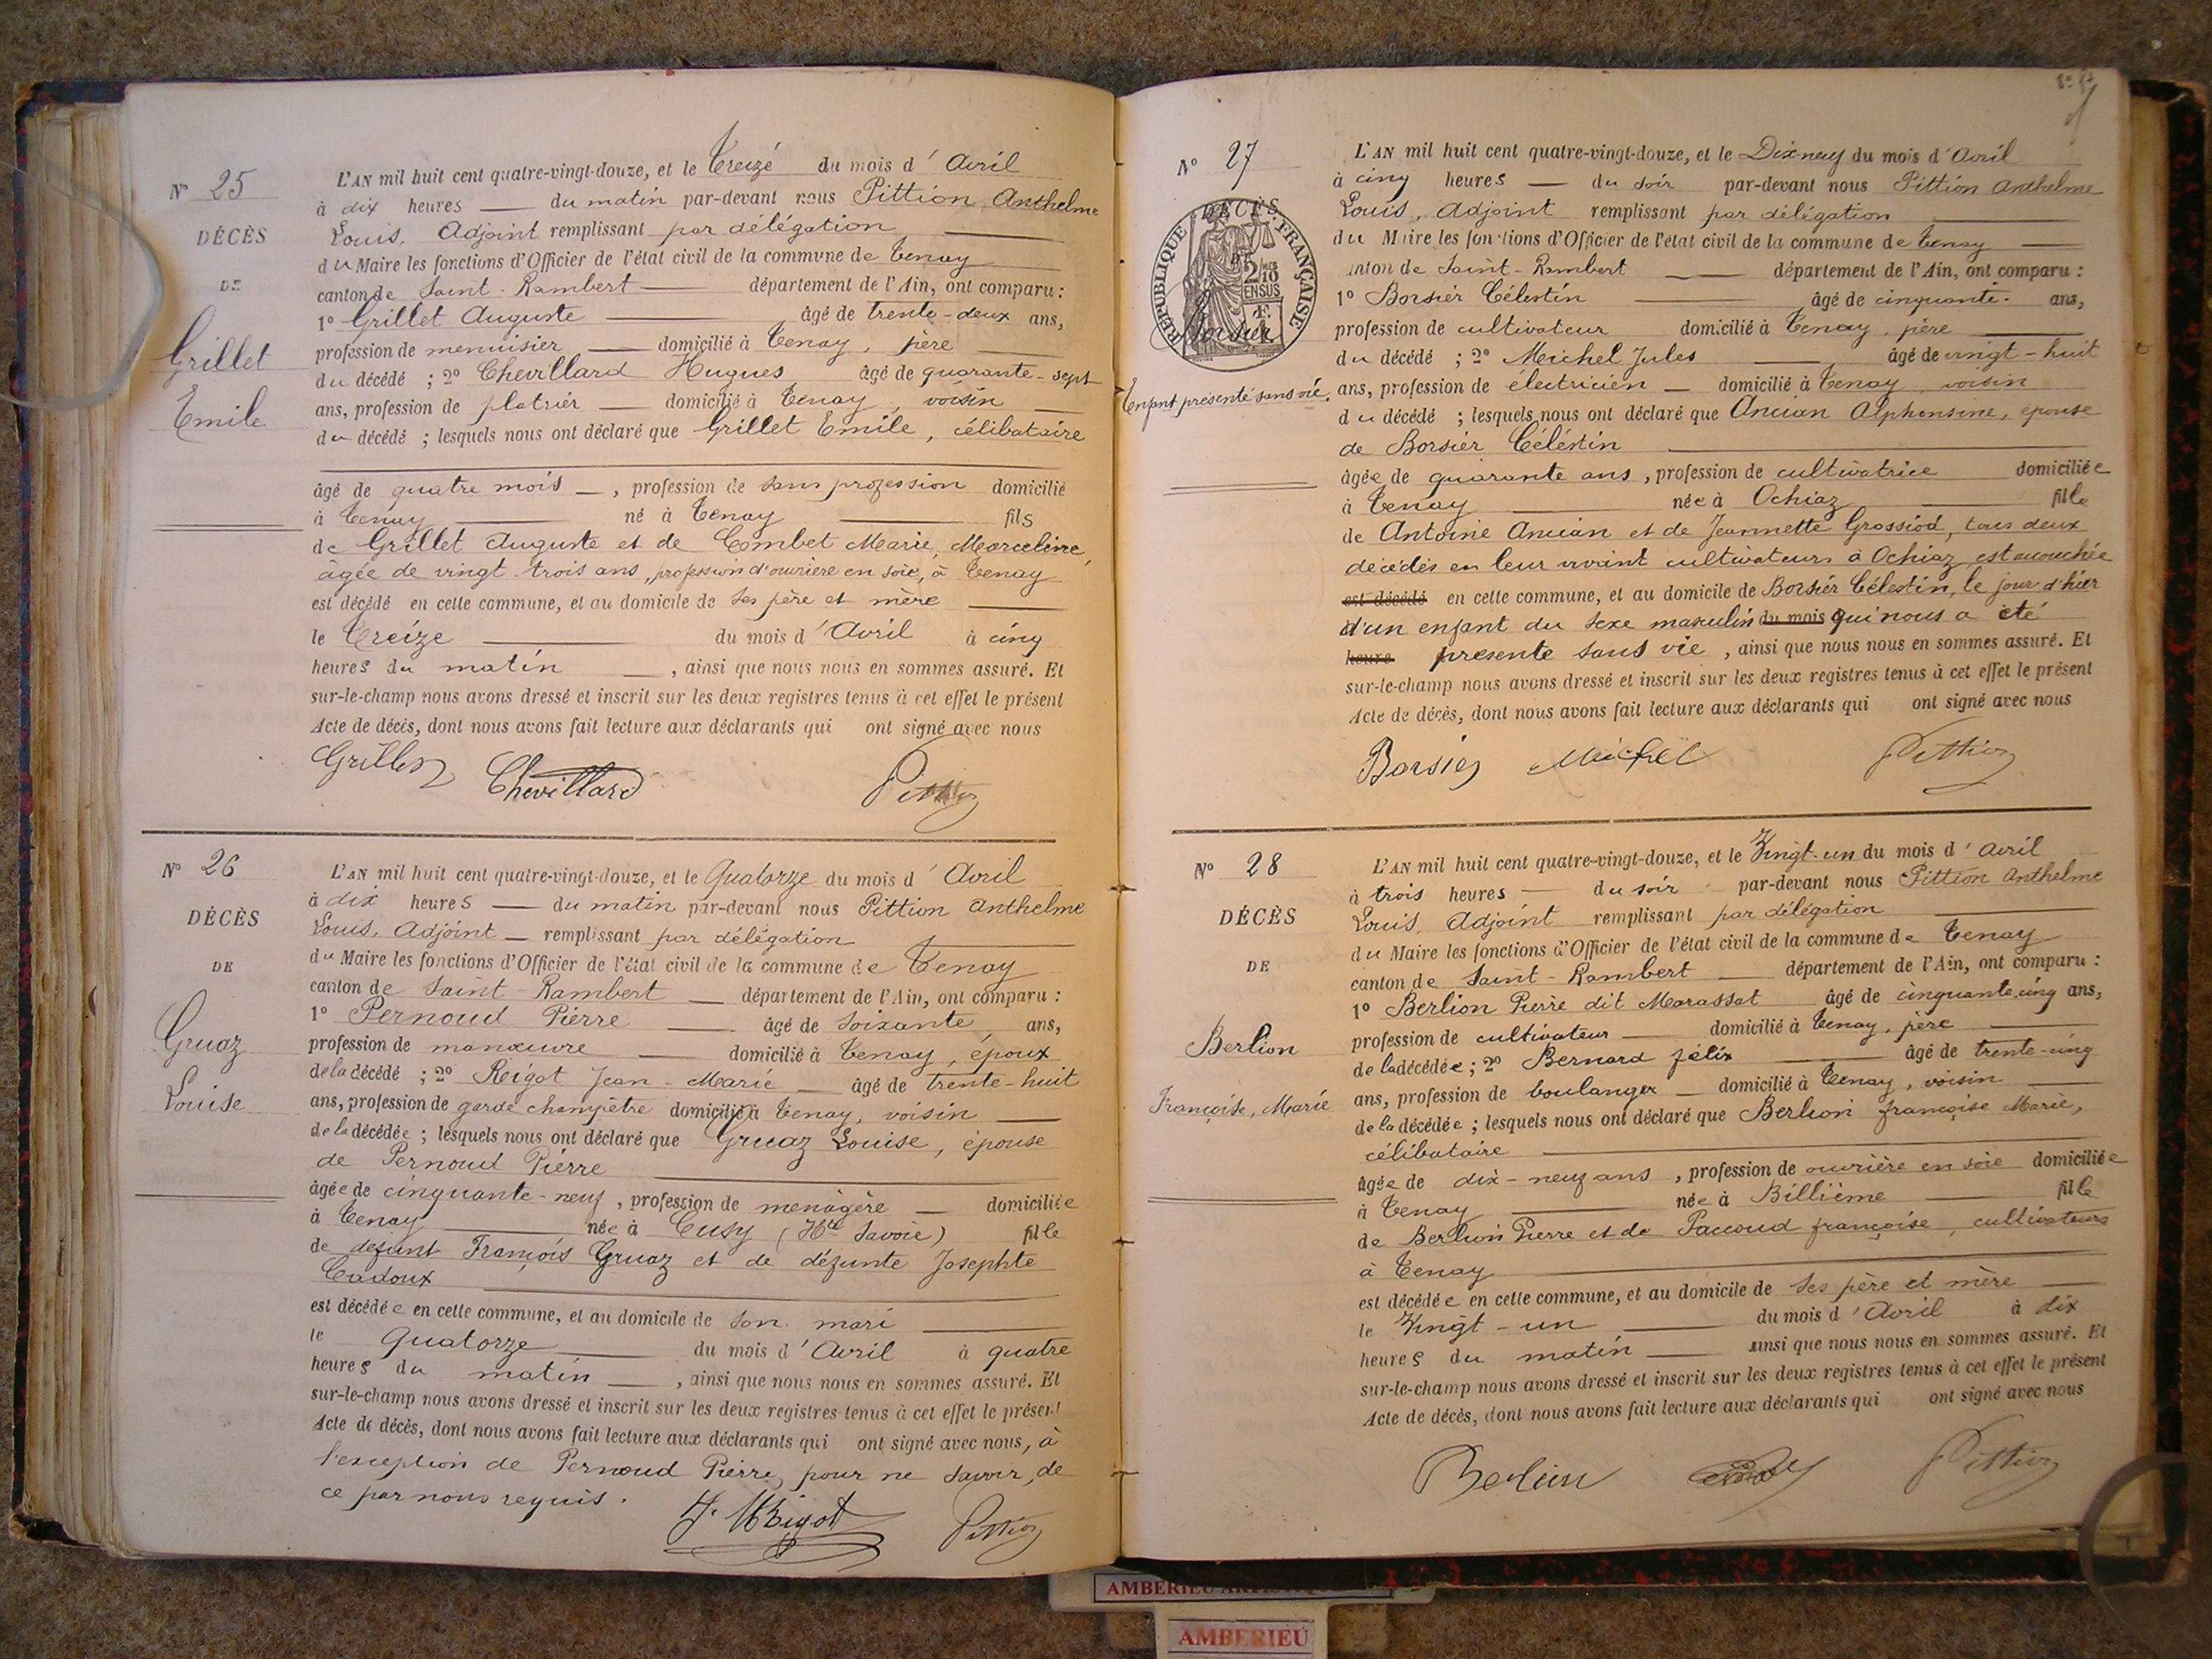 N° 25
DÉCÈS
DE
Grillet
Emile
L'AN mil huit cent quatre-vingt-douze, et le Treize du mois d'Avril
à dix heures du matin par-devant nous Pittion Anthelme
Louis, Adjoint remplissant par délégation
du Maire les fonctions d'Officier de l'état civil de la commune de Tenay
canton de Saint-Rambert département de l'Ain, ont comparu :
1° Grillet Auguste âgé de trente-deux ans,
profession de menuisier domicilié à Tenay, père
du décédé ; 2° Chevillard Hugues âgé de quarante-sept
ans, profession de platrier domicilié à Tenay, voisin
du décédé ; lesquels nous ont déclaré que Grillet Emile, célibataire
âgé de quatre mois, profession de sans profession domicilié
à Tenay né à Tenay fils
de Grillet Auguste et de Combet Marie, Marceline,
âgée de vingt-trois ans, profession d'ouvrière en soie, à Tenay
est décédé en cette commune, et au domicile de ses père et mère
le Treize du mois d'Avril à cinq
heures du matin, ainsi que nous nous en sommes assuré. Et
sur-le-champ nous avons dressé et inscrit sur les deux registres tenus à cet effet le présent
Acte de décès, dont nous avons fait lecture aux déclarants qui ont signé avec nous
Grillet Chevillard Pittion
N° 26
DÉCÈS
DE
Gruaz
Louise
L'AN mil huit cent quatre-vingt-douze, et le Quatorze du mois d'Avril
à dix heures du matin par-devant nous Pittion Anthelme
Louis, Adjoint remplissant par délégation
du Maire les fonctions d'Officier de l'état civil de la commune de Tenay
canton de Saint-Rambert département de l'Ain, ont comparu :
1° Pernoud Pierre âgé de soixante ans,
profession de manœuvre domicilié à Tenay, époux
de la décédé ; 2° Reigot Jean-Marie âgé de trente-huit
ans, profession de garde champêtre domicilié à Tenay, voisin
de la décédée ; lesquels nous ont déclaré que Gruaz Louise, épouse
de Pernoud Pierre
âgée de cinquante-neuf, profession de menagère domiciliée
à Tenay née à Cusy (Hte Savoie) fille
de defunt François Gruaz et de défunte Josephte
Cadoux
est décédée en cette commune, et au domicile de son mari
le Quatorze du mois d'Avril à quatre
heures du matin, ainsi que nous nous en sommes assuré. Et
sur-le-champ nous avons dressé et inscrit sur les deux registres tenus à cet effet le présent
Acte de décès, dont nous avons fait lecture aux déclarants qui ont signé avec nous, à
l'exception de Pernoud Pierre, pour ne savoir, de
ce par nous requis.
Pittion
N° 27
RÉPUBLIQUE FRANÇAISE
DÉCÈS
2/10 EN SUS
Borsier
Enfant présenté sans vie.
L'AN mil huit cent quatre-vingt-douze, et le Dix neuf du mois d'Avril
à cinq heures du soir par-devant nous Pittion Anthelme
Louis, Adjoint remplissant par délégation
du Maire les fonctions d'Officier de l'état civil de la commune de Tenay
canton de Saint-Rambert département de l'Ain, ont comparu :
1° Borsier Célestin âgé de cinquante ans,
profession de cultivateur domicilié à Tenay, père
du décédé ; 2° Michel Jules âgé de vingt-huit
ans, profession de électricien domicilié à Tenay, voisin
du décédé ; lesquels nous ont déclaré que Ancian Alphonsine, épouse
de Borsier Célestin
âgée de quarante ans, profession de cultivatrice domiciliée
à Tenay née à Ochiaz fille
de Antoine Ancian et de Jeannette Grossiod, tous deux
décédés en leur vivant cultivateurs à Ochiaz, est accouchée
est décédé en cette commune, et au domicile de Borsier Célestin, le jour d'hier
d'un enfant du sexe masculin du mois qui nous a été
heure presente sans vie, ainsi que nous nous en sommes assuré. Et
sur-le-champ nous avons dressé et inscrit sur les deux registres tenus à cet effet le présent
Acte de décès, dont nous avons fait lecture aux déclarants qui ont signé avec nous
Borsier Michel Pittion
N° 28
DÉCÈS
DE
Berlion
Françoise, Marie
L'AN mil huit cent quatre-vingt-douze, et le Vingt-un du mois d'Avril
à trois heures du soir par-devant nous Pittion Anthelme
Louis, Adjoint remplissant par délégation
du Maire les fonctions d'Officier de l'état civil de la commune de Tenay
canton de Saint-Rambert département de l'Ain, ont comparu :
1° Berlion Pierre dit Marassat âgé de cinquante-cinq ans,
profession de cultivateur domicilié à Tenay, père
de la décédée ; 2° Bernard félix âgé de trente-cinq
ans, profession de boulanger domicilié à Tenay, voisin
de la décédée ; lesquels nous ont déclaré que Berlion françoise Marie,
célibataire
âgée de dix-neuf ans, profession de ouvrière en soie domiciliée
à Tenay née à Billième fille
de Berlion Pierre et de Pacoud françoise, cultivateurs
à Tenay
est décédée en cette commune, et au domicile de ses père et mère
le Vingt-un du mois d'Avril à dix
heures du matin ainsi que nous nous en sommes assuré. Et
sur-le-champ nous avons dressé et inscrit sur les deux registres tenus à cet effet le présent
Acte de décès, dont nous avons fait lecture aux déclarants qui ont signé avec nous
Berlion Pittion
AMBERIEU
AMBERIEU